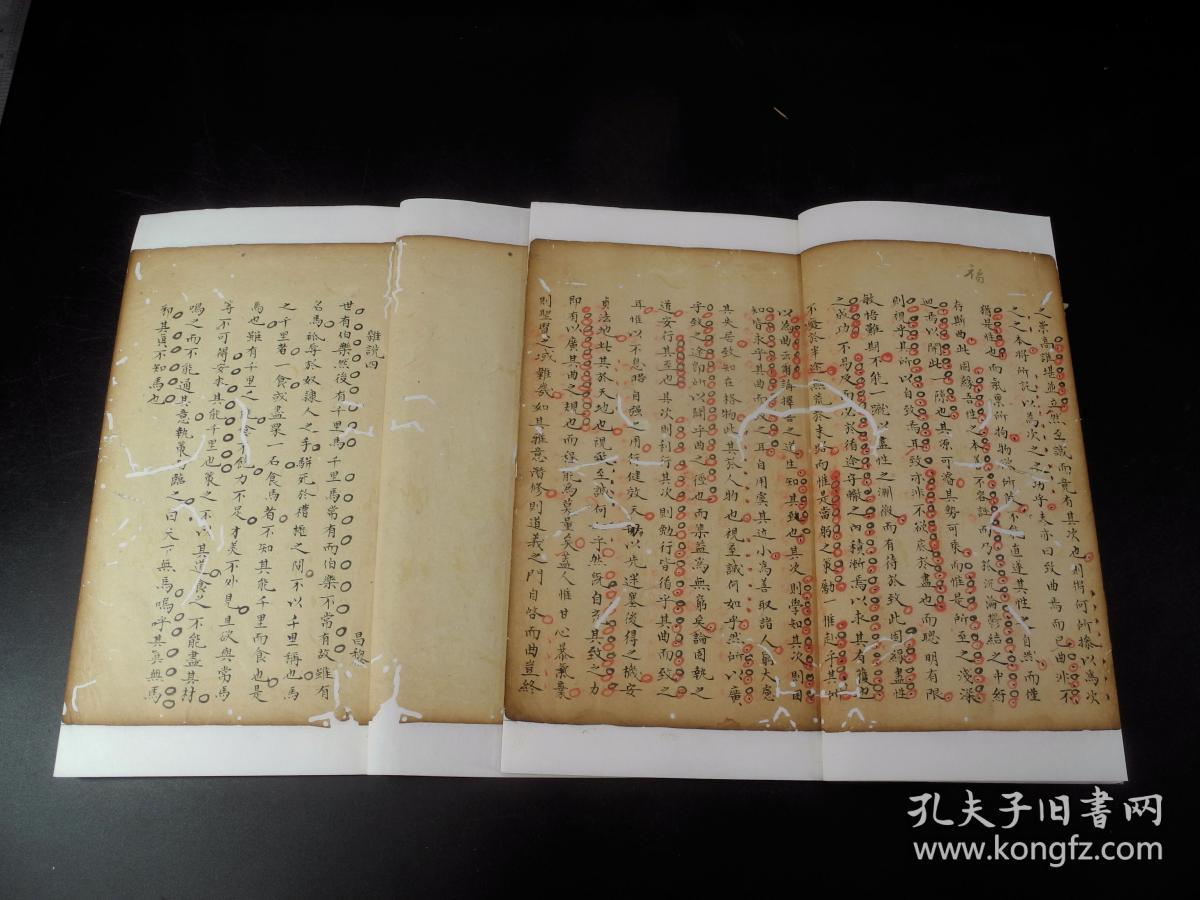 福
之崇高誰是過立然至誠而竟有其次也則得何所據以為次
之之本將所託以為次之之功乎夫亦曰致曲焉而已曲非不
猶是性也而氣稟所拘物欲所蔽不能直遂其性之自然而僅
存斯曲此固緣吾性之本善不容誣而乃於沉淪錮結之中紆
迴焉以開此一隙也其源可濬其勢可乘而惟是所至之淺深
則視乎其所以自致焉耳致亦非不欲底於盡也而聰明有限
敏悟難期不能一蹴以盡性之淵微而有待於致此固歸盡性
之成功不易及而以於循途守轍之內積漸焉以求其有獲也
不廢於半途無荒於末路而惟是當躬之策勵一惟赴乎其
以為曲云爾論擇善之道生知其致也其次則學知其次則困
知皆求乎其曲而致之耳自用虞其近小為善取諸人躬大處
其矣居致知在格物此其於人物也視至誠何如乎然所以廣
乎致之途即所以關乎曲之徑也而集益為無窮矣論固執之
道安行其至也其次則利行其次則勉行皆循乎其曲而致之
耳惟以不息時自強之用行健效天以先迷墨後得之機安
貞法地此其於天地也視至誠何如乎然既自竭其致之力
即有以廣其曲之規也而得能為莫量矣蓋人惟甘心暴棄
則聖賢之域難幾如其雅意潛修則道義之門自啓而曲豈終
雜說四
昌黎
世有伯樂然後有千里馬千里馬常有而伯樂不常有故雖有
名馬祗辱於奴隸人之手駢死於槽櫪之間不以千里稱也馬
之千里者一食或盡粟一石食馬者不知其能千里而食也是
馬也雖有千里之能食不飽力不足才美不外見且欲與常馬
等不可得安求其能千里也策之不以其道食之不能盡其材
鳴之而不能通其意執策而臨之曰天下無馬嗚呼其真無馬
邪其真不知馬也
孔夫子旧书网
www.kongfz.com